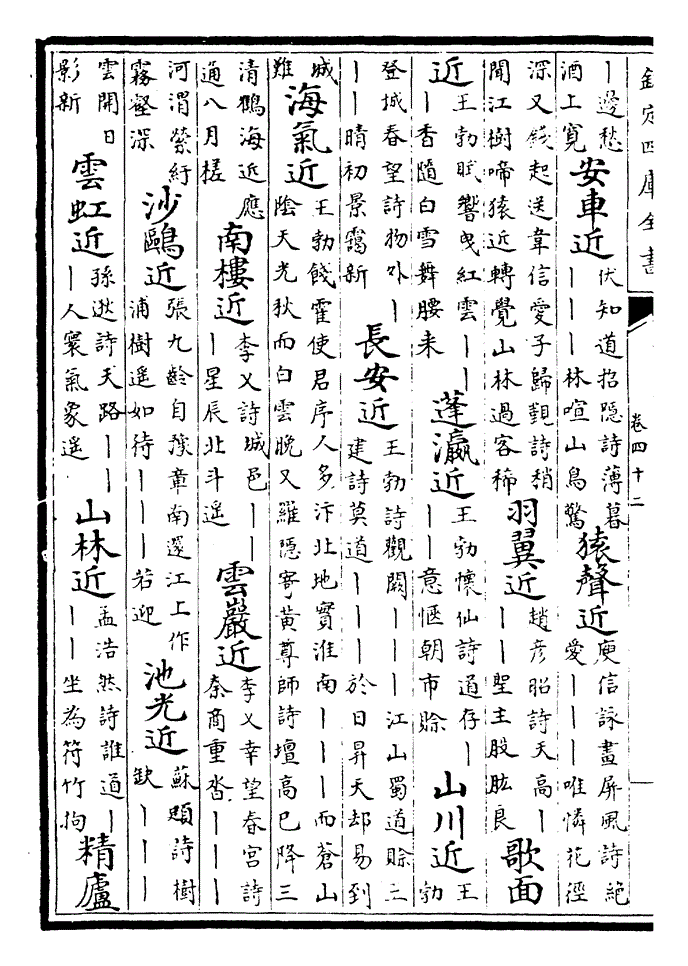 欽定四庫全書
卷四十二
丨邊愁
酒上寬
安車近
伏知道招隱詩薄暮
丨丨丨林喧山鳥驚
猿聲近
庾信詠畫屏風詩絕
愛丨丨丨唯憐花徑
深又錢起送韋信愛子歸覲詩稍
聞江樹啼猿近轉覺山林過客稀
羽翼近
趙彥昭詩天高丨
丨丨聖主股肱良
歌面
近
王勃賦響曵紅雲丨丨
丨香隨白雪舞腰来
蓬瀛近
王勃懷仙詩道存丨
丨丨意愜朝市賒
山川近
王
勃
登城春望詩物外丨
丨丨晴初景靄新
長安近
王勃詩觀闕丨丨丨江山蜀道賒王
建詩莫道丨丨丨於日昇天却易到
城
難
海氣近
王勃餞霍使君序人多汴北地實淮南丨丨丨而蒼山
陰天光秋而白雲晚又羅隱寄黃尊師詩壇高已降三
清鶴海近應
通八月槎
南樓近
李乂詩城邑丨丨
丨星辰北斗遥
雲巖近
李乂幸望春宮詩
秦商重沓丨丨丨
河渭縈紆
霧壑深
沙鷗近
張九齡自豫章南還江上作
浦樹遥如待丨丨丨若迎
池光近
蘇頲詩樹
缺丨丨丨
雲開日
影新
雲虹近
孫逖詩天路丨丨
丨人寰氣象遥
山林近
孟浩然詩誰道丨
丨丨坐為符竹拘
精廬